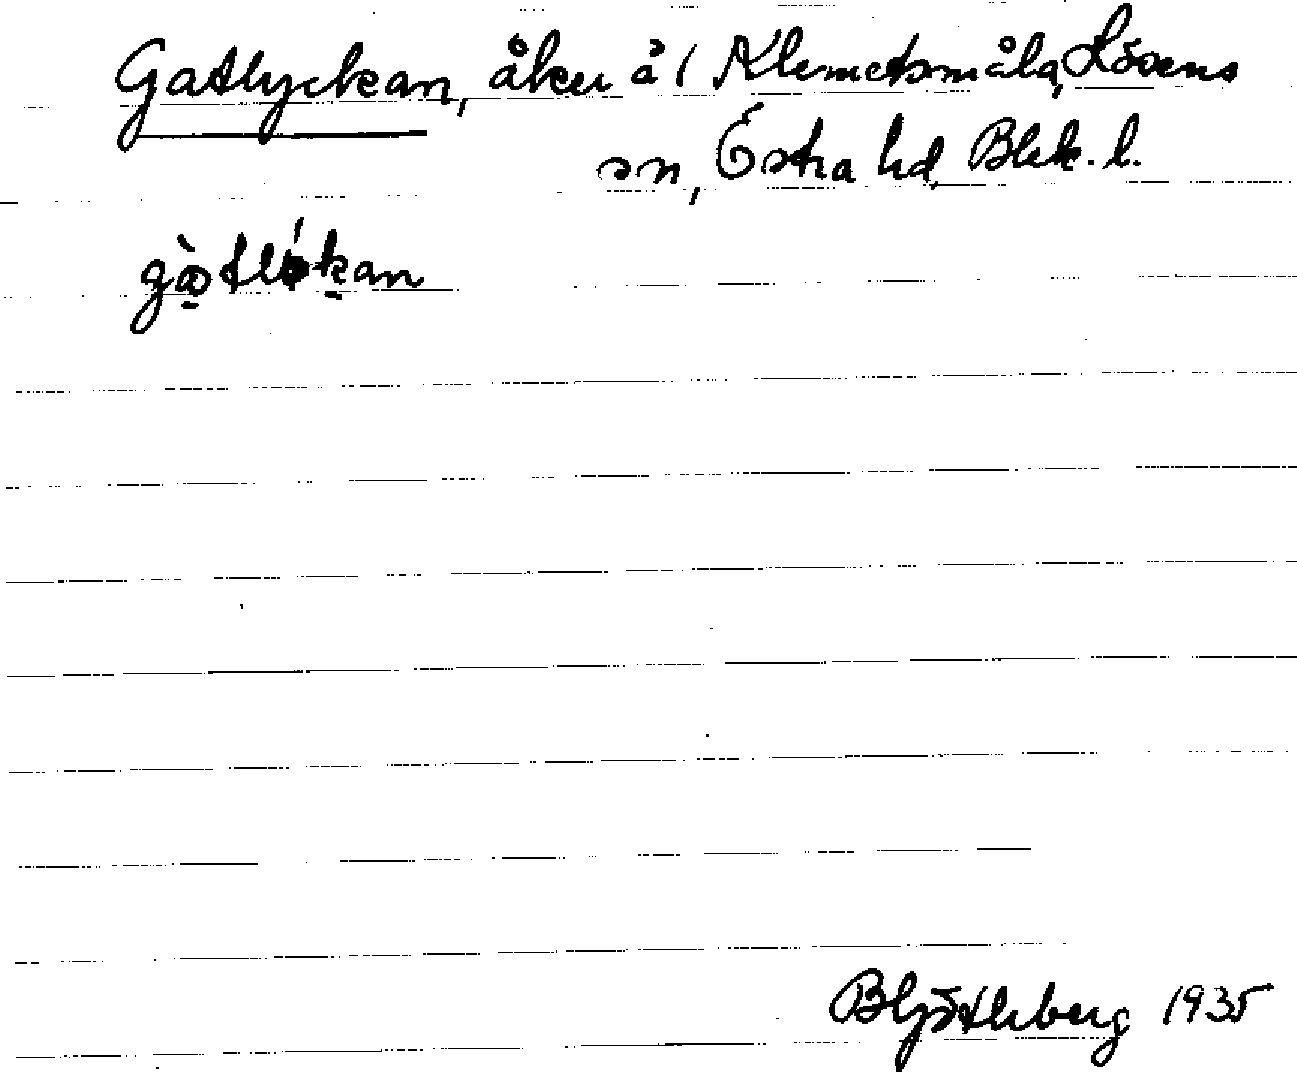 Gatlyckan, åker å 1 Klemetsmåla, Lösens
sn, Östra hd, Blek. l.
BHjötleberg 1935